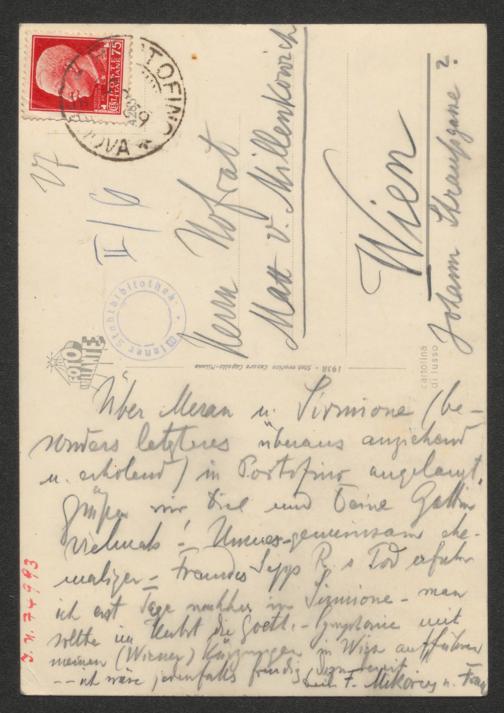 75
PORTOFINO
V7
II/6
Herrn Hofrat
Max v. Millenkovich
Wien
Johann Straußgasse ?
Wiener Stadtbibliothek
FOTO
BRILLANTE
1938 - Stab. eseguito Cesare Capello-Milano
cartolina
di lusso
Über Meran u. Sirmione (be-
sonders letzteres überaus anziehend
u. erholend) in Portofino angelangt,
grüßen wir Dich und Deine Gattin
vielmals! Unseres gemeinsam ehe-
maligen Freundes Sepp R.s Tod erfuhr
ich erst Tage nachher in Sirmione - man
sollte im Herbst die Goethe-Symphonie mit
meinen (Wiener) Kürzungen in Wien aufführen
-- ich wäre jedenfalls freudig
Dein F. Mikorey u. Frau
J.N. 74993